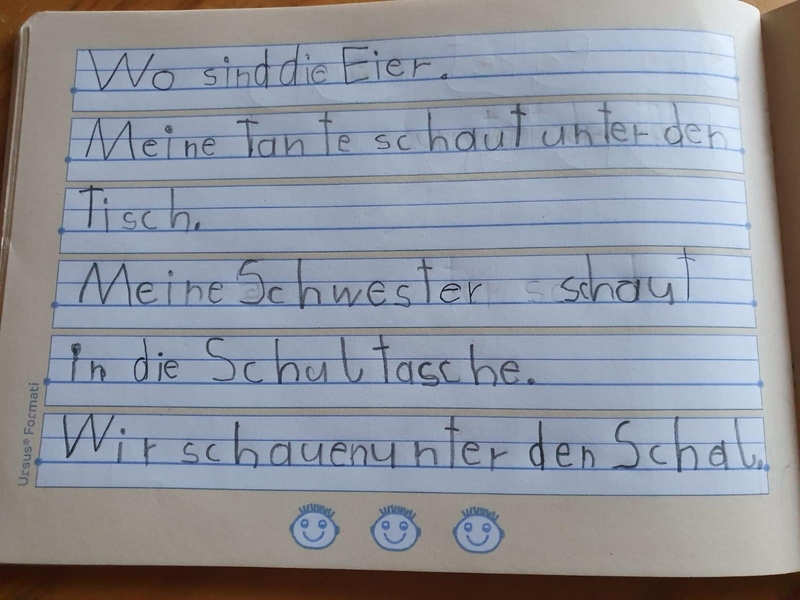 Wo sind die Eier.
Meine Tante schaut unter den
Tisch.
Meine Schwester schaut
in die Schultasche.
Wir schauen unter den Schal.
Ursus® Formati